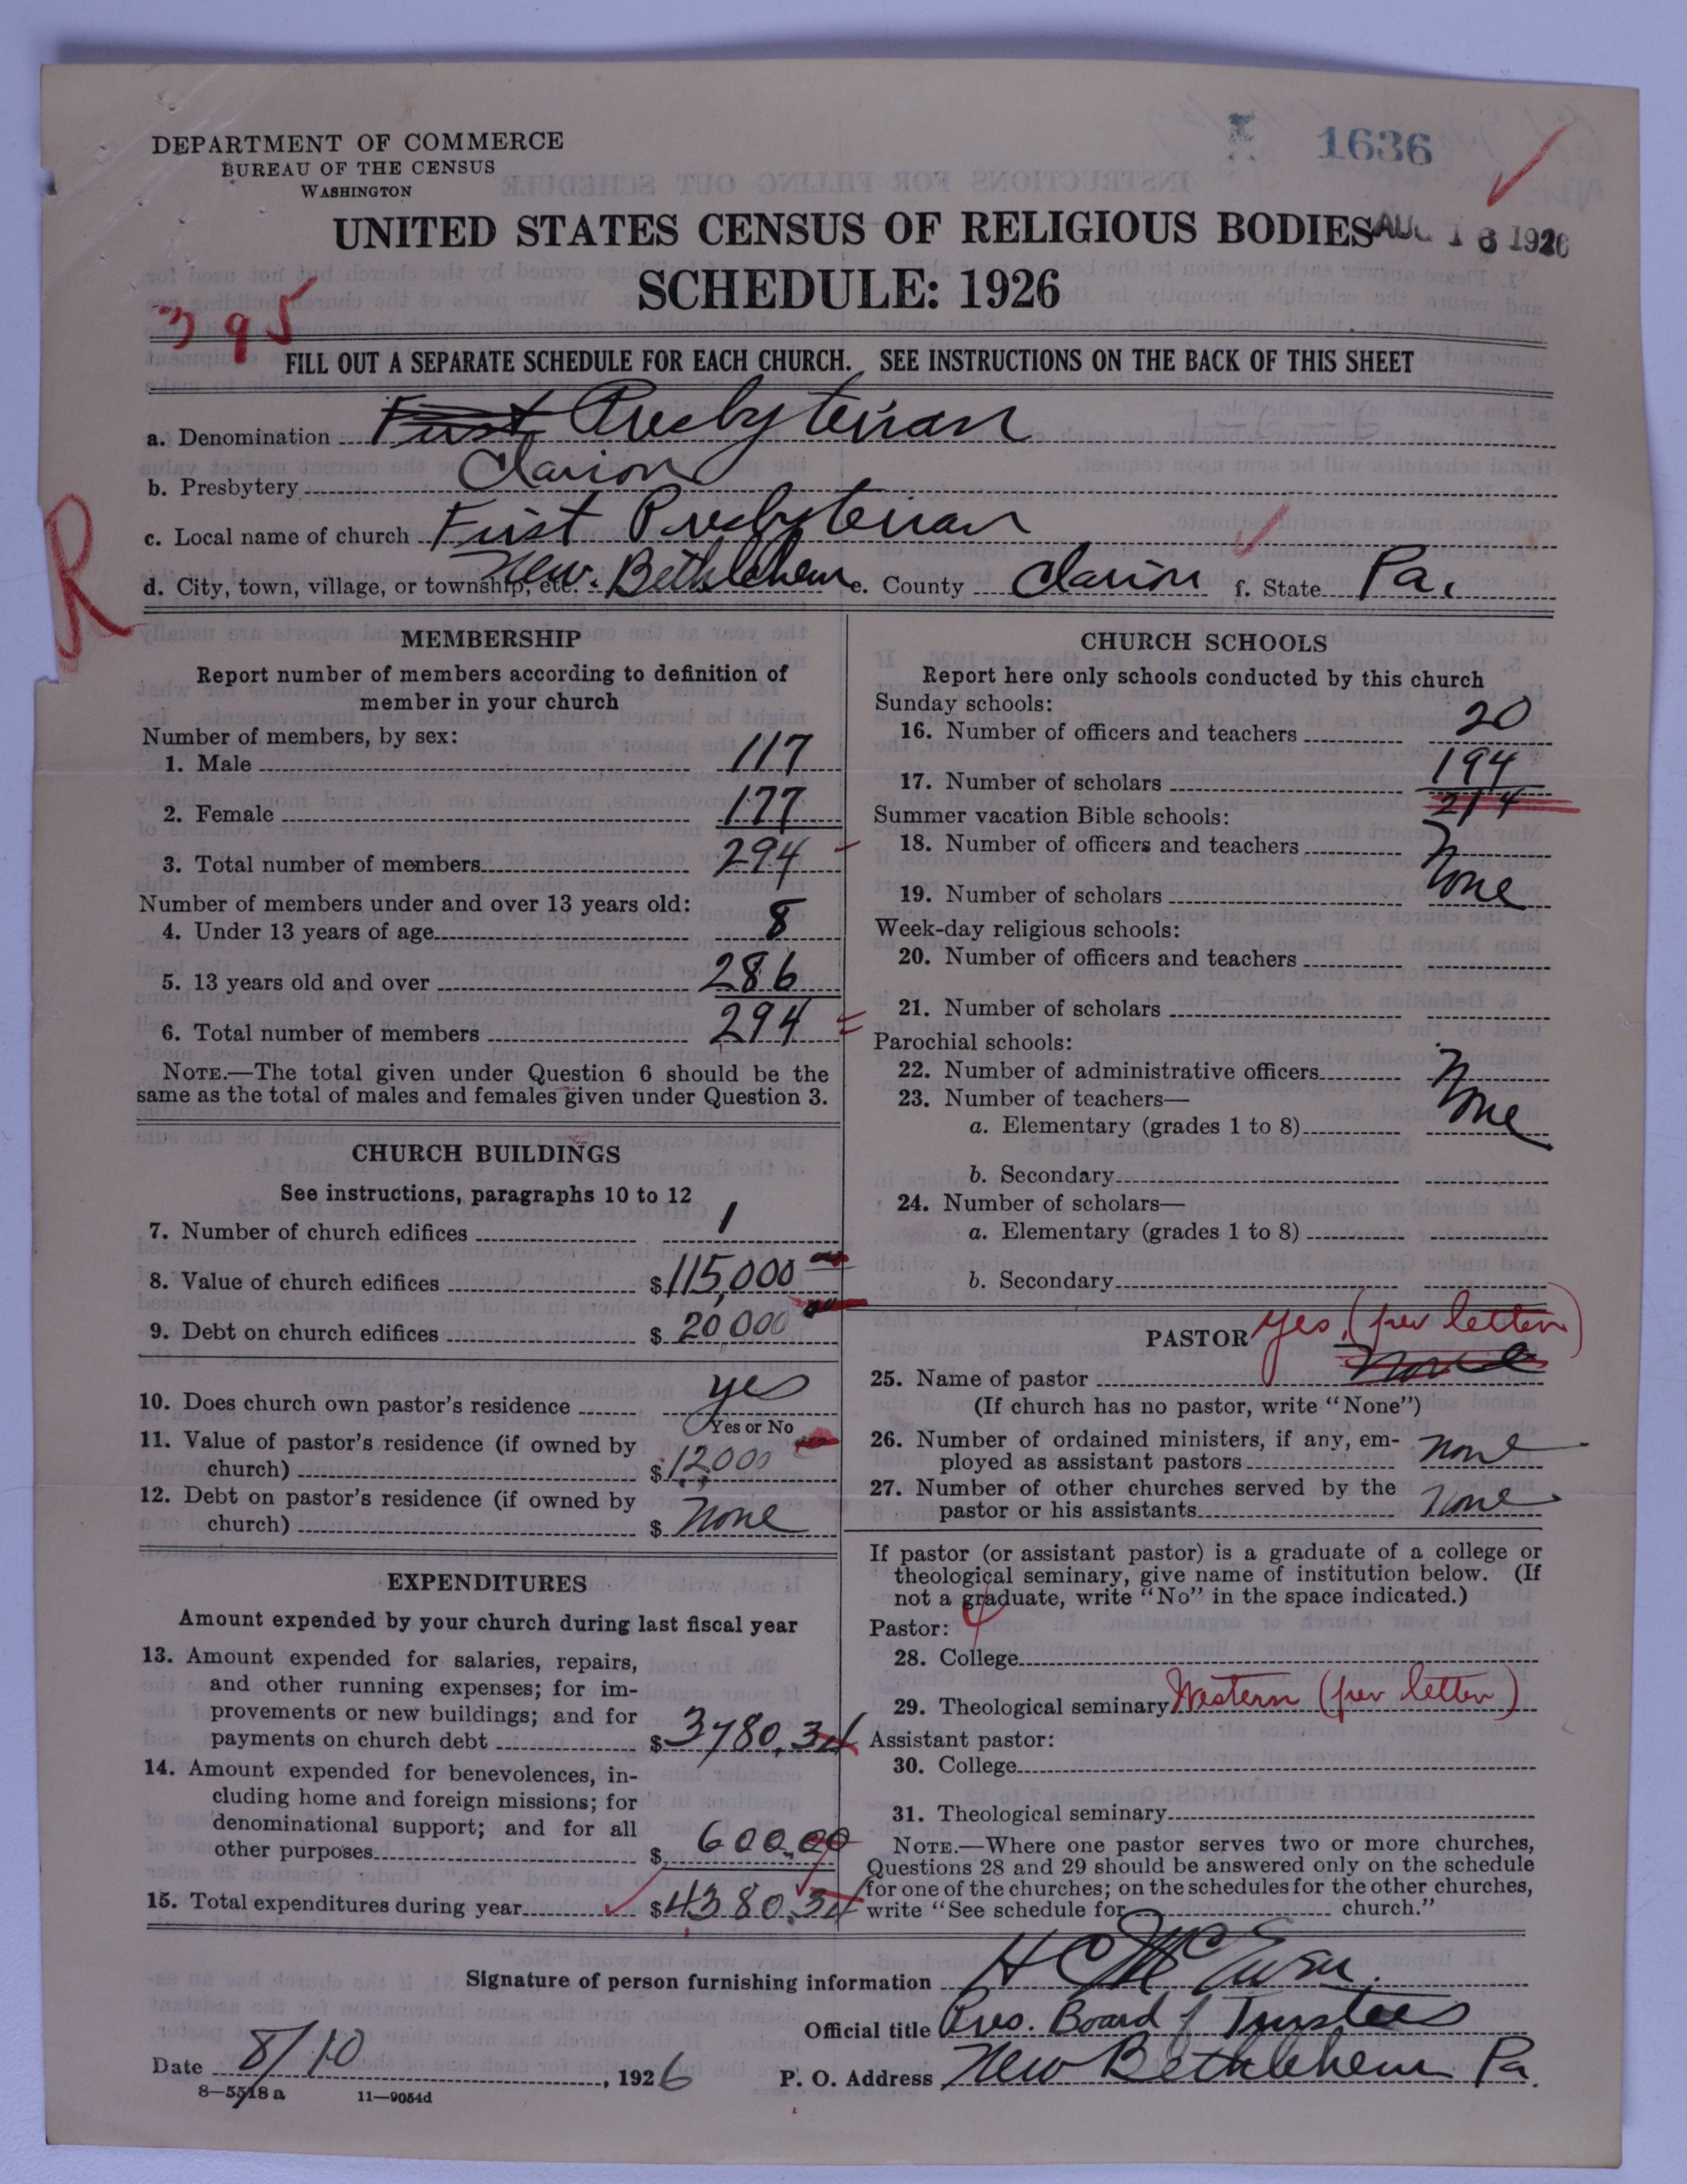 DEPARTMENT OF COMMERCE
BUREAU OF THE CENSUS
WASHINGTON
1636
UNITED STATES CENSUS OF RELIGIOUS BODIES
AUG 16 1926
SCHEDULE: 1926
395
FILL OUT A SEPARATE SCHEDULE FOR EACH CHURCH. SEE INSTRUCTIONS ON THE BACK OF THIS SHEET
a. Denomination First Presbyterian
b. Presbytery Clarion
c. Local name of church First Presbyterian
d. City, town, village, or township, etc. New Bethlehem e. County Clarion f. State Pa.
R
MEMBERSHIP
Report number of members according to definition of
member in your church
Number of members, by sex:
1. Male 117
2. Female 177
3. Total number of members 294
Number of members under and over 13 years old:
4. Under 13 years of age 8
5. 13 years old and over 286
6. Total number of members 294
NOTE.—The total given under Question 6 should be the
same as the total of males and females given under Question 3.
CHURCH BUILDINGS
See instructions, paragraphs 10 to 12
7. Number of church edifices 1
8. Value of church edifices $115,000
9. Debt on church edifices $20,000
10. Does church own pastor's residence yes
Yes or No
11. Value of pastor's residence (if owned by
church) $12,000
12. Debt on pastor's residence (if owned by
church) $ none
EXPENDITURES
Amount expended by your church during last fiscal year
13. Amount expended for salaries, repairs,
and other running expenses; for im-
provements or new buildings; and for
payments on church debt $3780.34
14. Amount expended for benevolences, in-
cluding home and foreign missions; for
denominational support; and for all
other purposes $600.00
15. Total expenditures during year $4380.34
CHURCH SCHOOLS
Report here only schools conducted by this church
Sunday schools:
16. Number of officers and teachers 20
17. Number of scholars 194
214
Summer vacation Bible schools:
18. Number of officers and teachers
19. Number of scholars None
Week-day religious schools:
20. Number of officers and teachers
21. Number of scholars
Parochial schools:
22. Number of administrative officers
23. Number of teachers—
a. Elementary (grades 1 to 8) None
b. Secondary
24. Number of scholars—
a. Elementary (grades 1 to 8)
b. Secondary
PASTOR yes (per letter)
25. Name of pastor none
(If church has no pastor, write "None")
26. Number of ordained ministers, if any, em-
ployed as assistant pastors none
27. Number of other churches served by the
pastor or his assistants none
If pastor (or assistant pastor) is a graduate of a college or
theological seminary, give name of institution below. (If
not a graduate, write "No" in the space indicated.)
Pastor:
28. College
29. Theological seminary Western (per letter)
Assistant pastor:
30. College
31. Theological seminary
NOTE.—Where one pastor serves two or more churches,
Questions 28 and 29 should be answered only on the schedule
for one of the churches; on the schedules for the other churches,
write "See schedule for church."
Signature of person furnishing information H C McEwen
Official title Pres. Board of Trustees
Date 8/10, 1926 P. O. Address New Bethlehem Pa.
8—5518 a 11—9054d